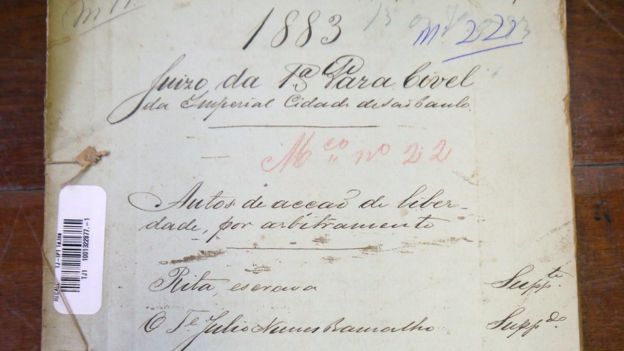 1883
Mº 2223
Juizo da 1ª Vara Civel
da Imperial Cidade de São Paulo.
Mco nº 22
Autos de acção de liber-
dade, por arbitramento
Rita, escrava Suppte
O Te Julio Nunes Ramalho Suppdo
TJ1 1001322877.-1